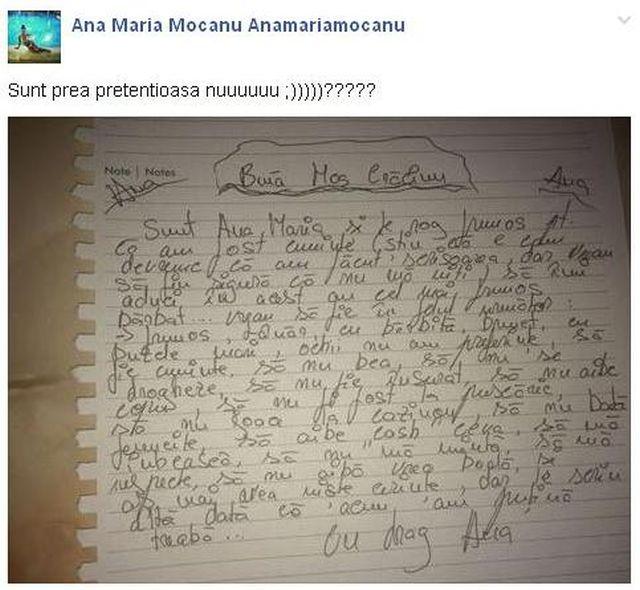 Ana Maria Mocanu Anamariamocanu
Sunt prea pretentioasa nuuuuuu ;)))))?????
Note | Notes
Ana
Bună Moș Crăciun
Ana
Sunt Ana Maria și te rog frumos pt.
că am fost cuminte (știu că e cam
devreme că am făcut scrisoarea, dar vreau
să fiu sigură că nu mă uiți) să îmi
aduci în acest an cel mai frumos
bărbat... vreau să fie în felul următor:
→ frumos, cu bărbiță, brunet, cu
buzele mari, ochii nu am preferințe, să
fie cuminte, să nu bea, să nu se
drogheze, să nu fie însurat, să nu aibe
copii, să nu fi fost la pușcărie, să
stă nu să nu bată
femeile, să aibe "cash" ceva, să mă
iubească, să nu mă mintă, să mă
respecte, să nu aibă vreo boală, și
aș mai avea niște cerințe, dar îți scriu
altă dată că acum am puțină
treabă...
Cu drag Ana